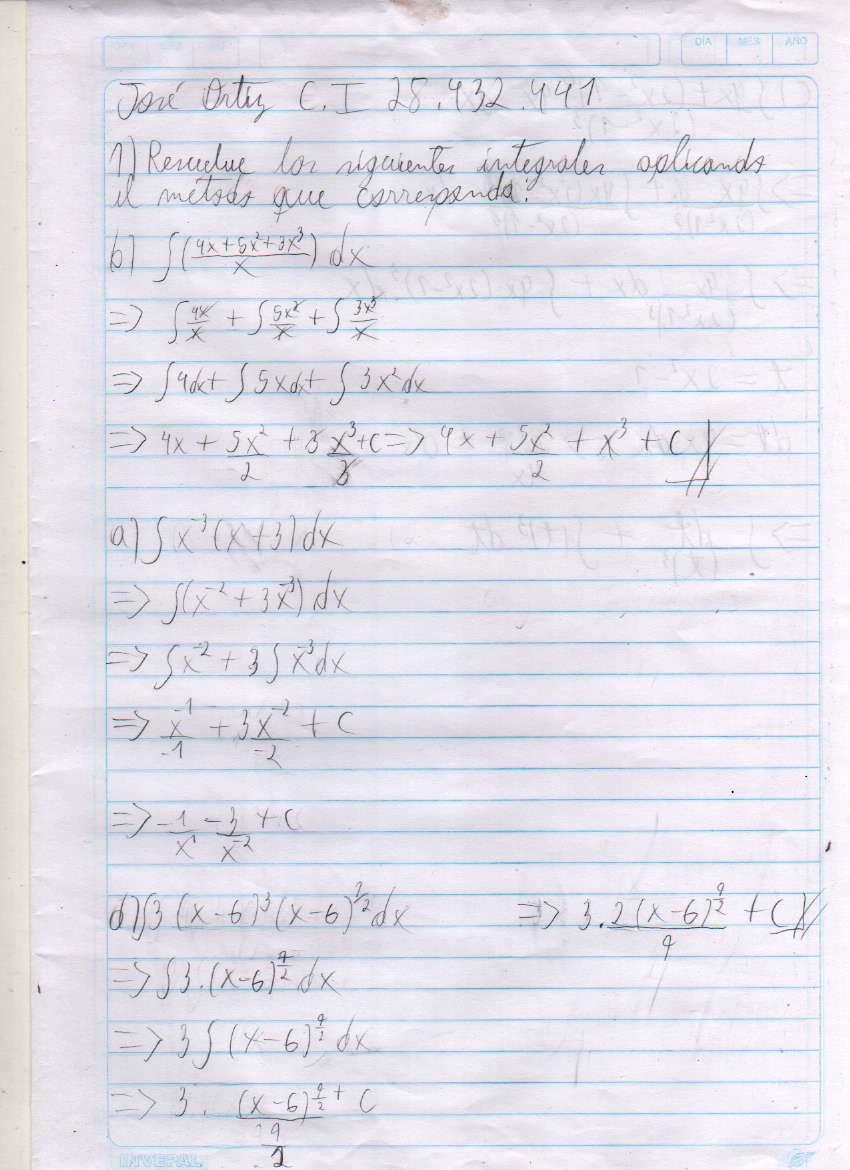 José Ortiz C.I 28.432.441
1) Resuelve las siguientes integrales aplicando
el método que corresponda.
b) ∫(4x+5x²+3x³/x) dx
=> ∫4x/x + ∫5x²/x + ∫3x³/x
=> ∫4dx + ∫5xdx + ∫3x²dx
=> 4x + 5x²/2 + 3x³/3 + C => 4x + 5x²/2 + x³ + C //
a) ∫x⁻³(x+3)dx
=> ∫(x⁻² + 3x⁻³)dx
=> ∫x⁻² + 3∫x⁻³dx
=> x⁻¹/-1 + 3x⁻²/-2 + C
=> -1/x¹ - 3/x⁻² + C
d) ∫3(x-6)³(x-6)^½dx => 3.2(x-6)^9/2 / 9 + C //
=> ∫3.(x-6)^7/2dx
=> 3∫(x-6)^9/2dx
=> 3. (x-6)^9/2 / 9/2 + C
INVEPAL